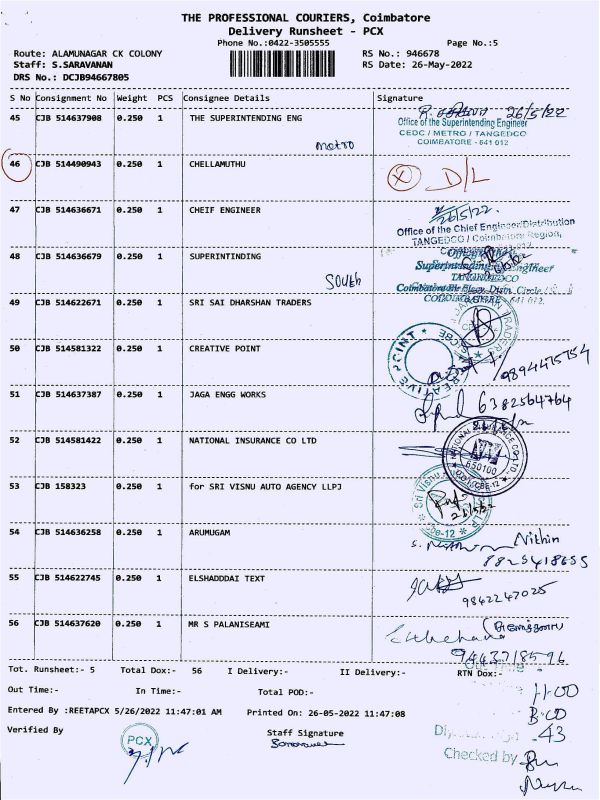 THE PROFESSIONAL COURIERS, Coimbatore
Delivery Runsheet - PCX
Phone No.:0422-3505555 Page No.:5
Route: ALAMUNAGAR CK COLONY RS No.: 946678
Staff: S.SARAVANAN RS Date: 26-May-2022
DRS No.: DCJB94667805
S No Consignment No Weight PCS Consignee Details Signature
45 CJB 514637908 0.250 1 THE SUPERINTENDING ENG 26/5/22
Office of the Superintending Engineer
CEDC / METRO / TANGEDCO
metro COIMBATORE - 641 012
46 CJB 514490943 0.250 1 CHELLAMUTHU X D/L
47 CJB 514636671 0.250 1 CHEIF ENGINEER 26/5/22.
Office of the Chief Engineer/Distribution
TANGEDCO / Coimbatore Region,
48 CJB 514636679 0.250 1 SUPERINTINDING
Superintending Engineer
TANGEDCO
South Coimbatore Elec. Distn. Circle
COIMBATORE - 641 012.
49 CJB 514622671 0.250 1 SRI SAI DHARSHAN TRADERS
50 CJB 514581322 0.250 1 CREATIVE POINT CREATIVE POINT 9894475754
51 CJB 514637387 0.250 1 JAGA ENGG WORKS 6382564764
52 CJB 514581422 0.250 1 NATIONAL INSURANCE CO LTD NATIONAL INSURANCE CO LTD
650100
CBE-12
53 CJB 158323 0.250 1 for SRI VISNU AUTO AGENCY LLPJ Sri Visnu
26/5/22
Cbe-12
54 CJB 514636258 0.250 1 ARUMUGAM Nithin
8825418655
55 CJB 514622745 0.250 1 ELSHADDDAI TEXT
9842247025
56 CJB 514637620 0.250 1 MR S PALANISEAMI
9443718596
Tot. Runsheet:- 5 Total Dox:- 56 I Delivery:- II Delivery:- RTN Dox:-
Out Time:- In Time:- Total POD:- 11-00
Entered By :REETAPCX 5/26/2022 11:47:01 AM Printed On: 26-05-2022 11:47:08
Verified By Staff Signature 43
PCX
Checked by